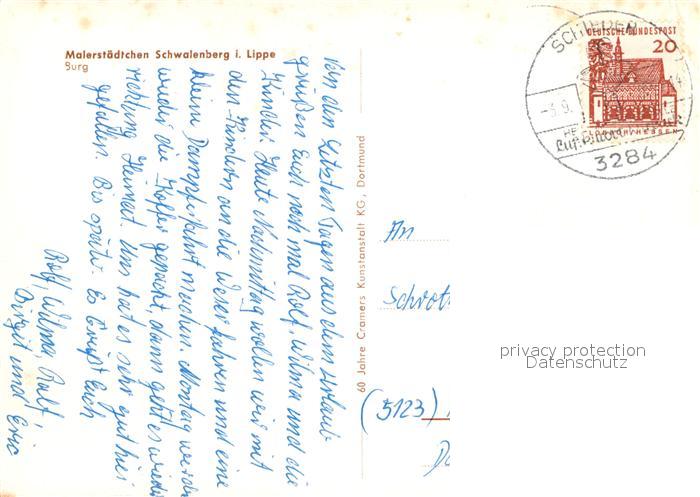 Malerstädtchen Schwalenberg i. Lippe
Burg
Von den letzten Tagen aus dem Urlaub
grüßen Euch noch mal Rolf, Wilma und die
Kinder. Heute Nachmittag wollen wir mit
den Kindern an die Weser fahren und eine
kleine Dampferfahrt machen. Montag werden
wieder die Koffer gepackt, dann geht es wieder
richtung Heimat. Uns hat es sehr gut hier
gefallen. Bis später. Es Grüßt Euch
Rolf, Wilma, Ralf,
Birgit und Eric
60 Jahre Cramers Kunstanstalt KG., Dortmund
DEUTSCHE BUNDESPOST
20
LORSCH/HESSEN
SCHIEDER
-3.9.
3284
An
Schrott
(5123)
privacy protection
Datenschutz